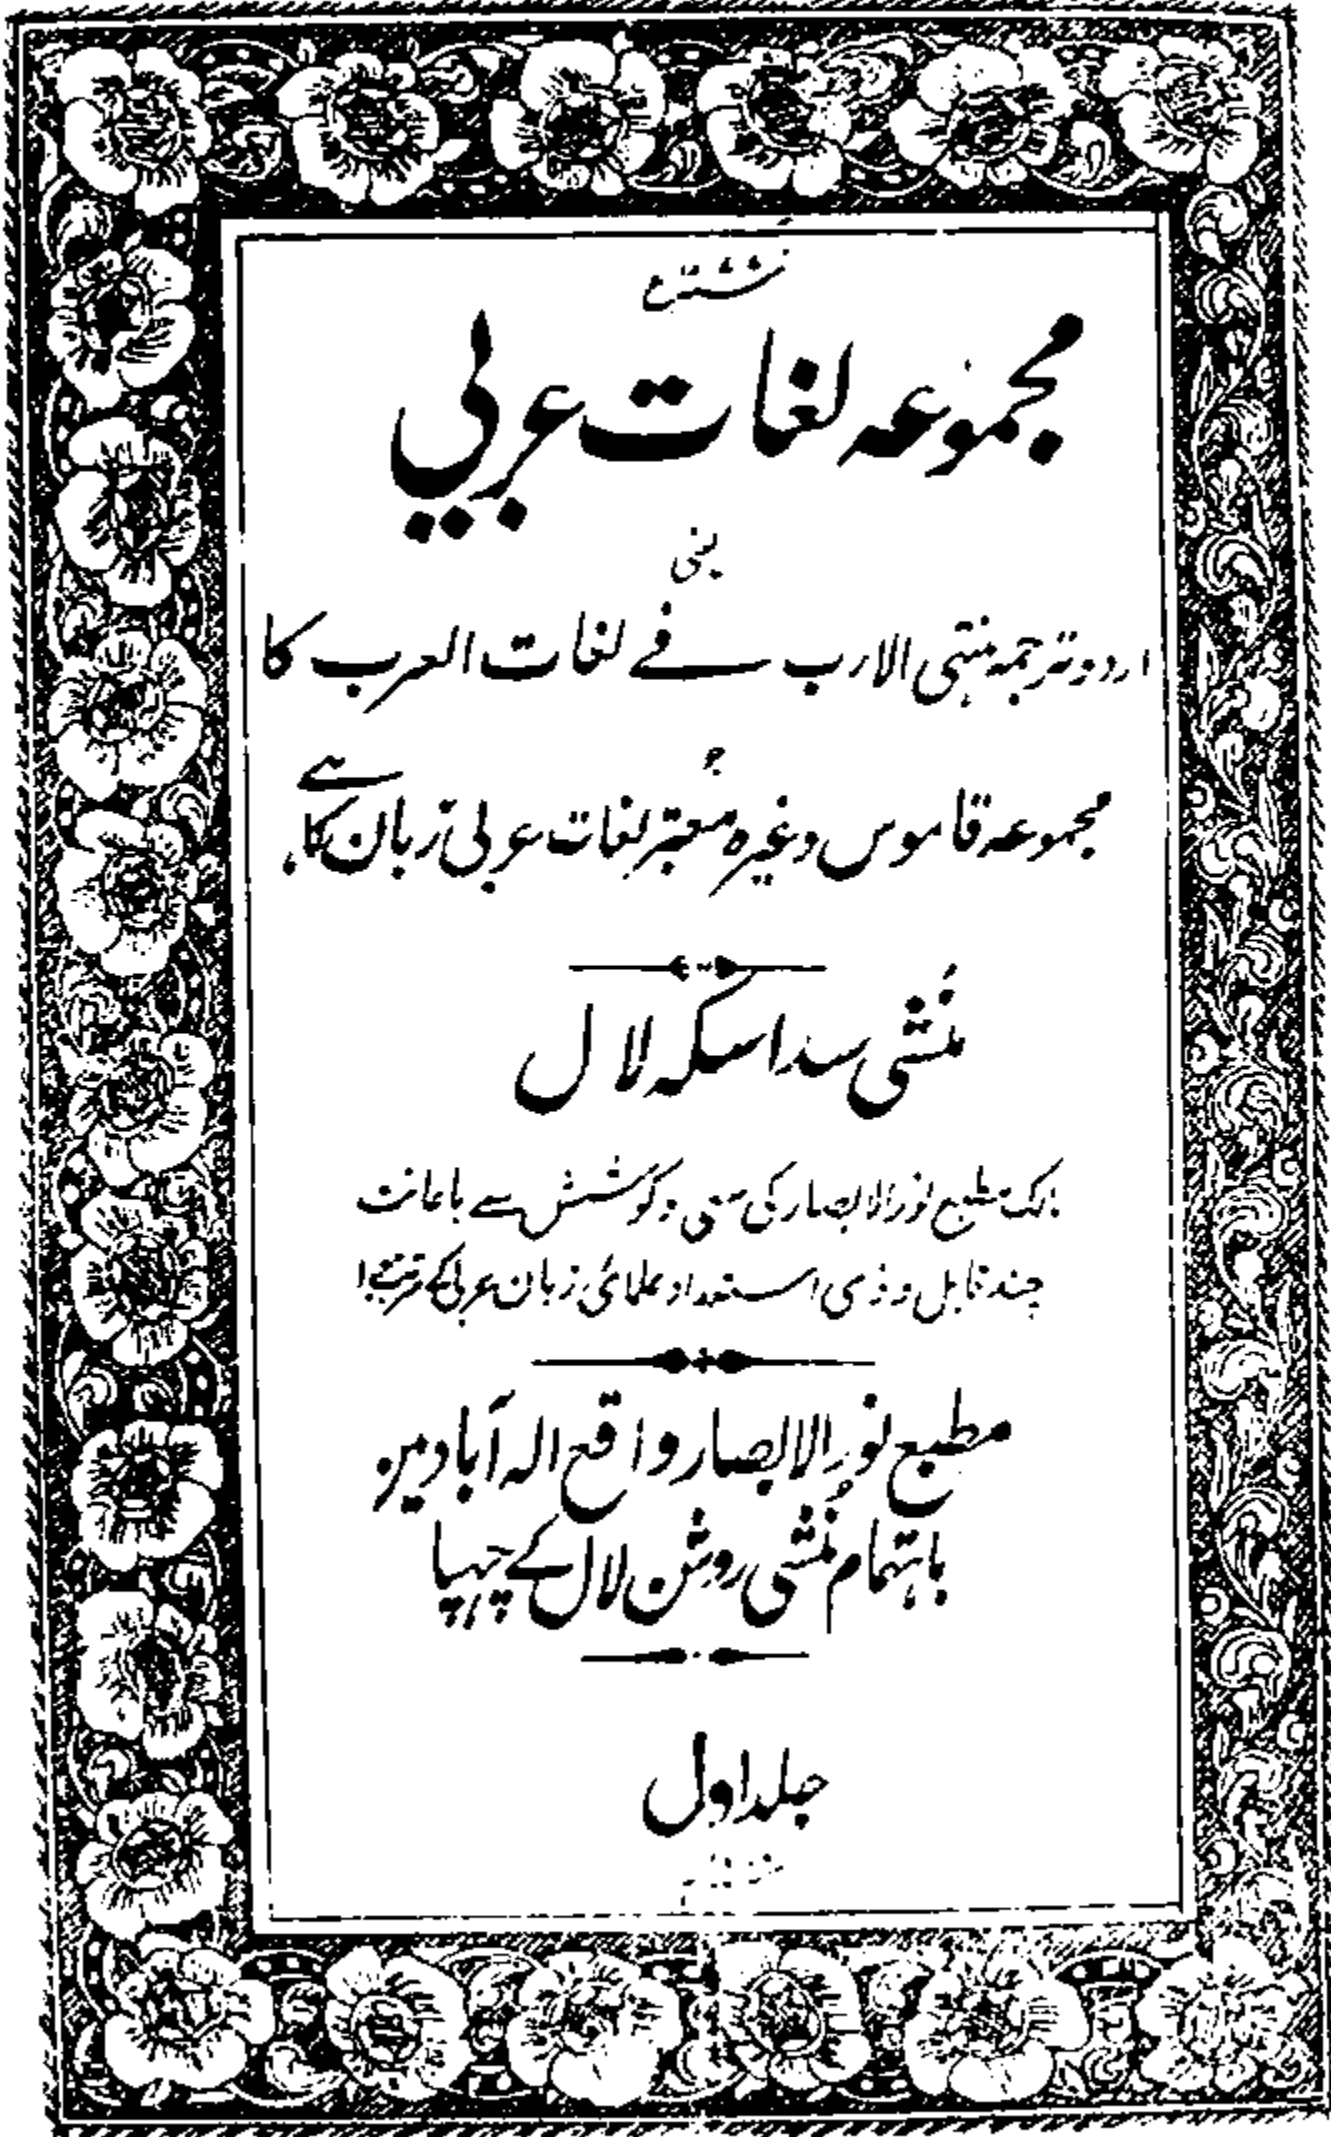 مجموعہ لغات عربی
یعنی
اردو ترجمہ منتہی الارب فے لغات العرب کا
جو
مجموعہ قاموس وغیرہ معتبر لغات عربی زبان کا ہے
منشی سداسکہ لال
مالک مطبع نورالابصار کی سعی و کوشش سے باعانت
چند قابل و ذی استعداد علمائ زبان عربی کے
مطبع نورالابصار واقع الہ آباد مین
باہتمام منشی روشن لال کے چہپا
جلد اول